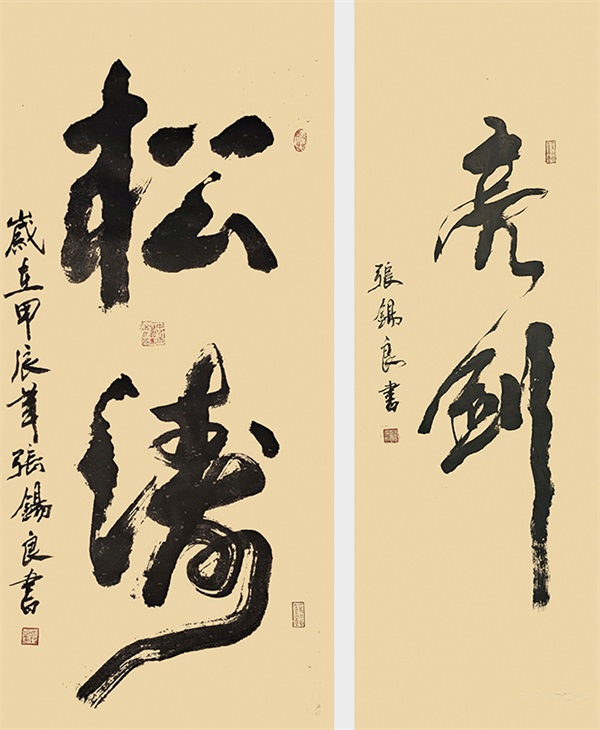 松濤
歲在甲辰年張錫良書
亮劍
張錫良書